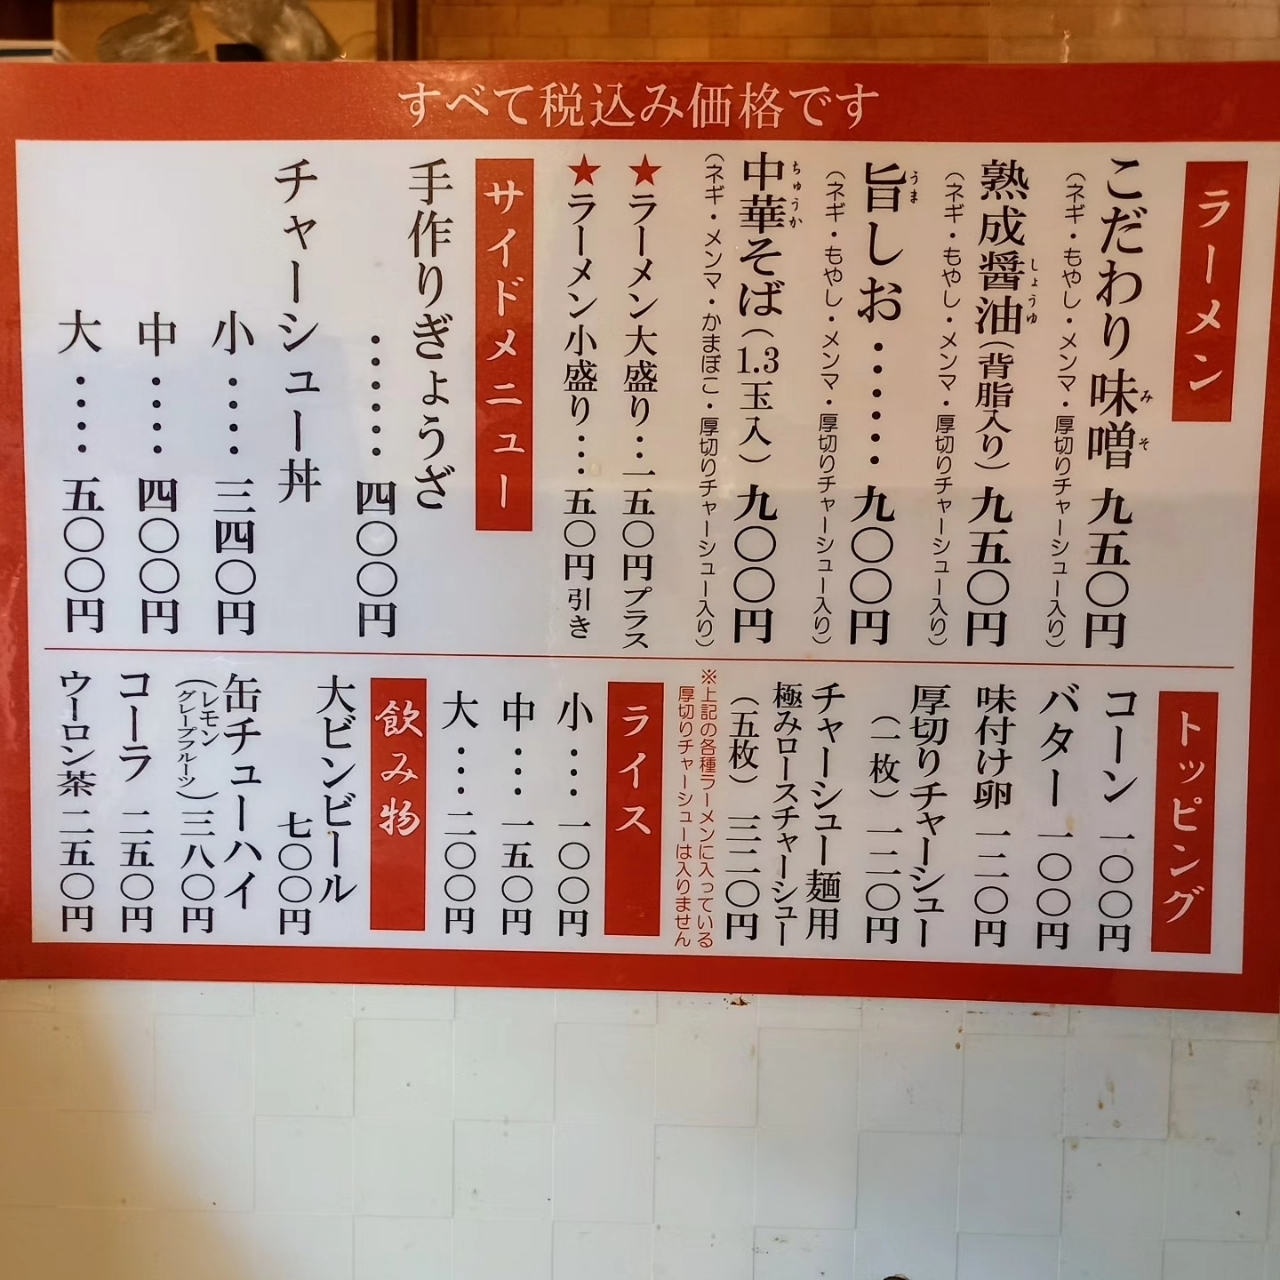 すべて税込み価格です
ラーメン
こだわり味噌 九五〇円
(ネギ・もやし・メンマ・厚切りチャーシュー入り)
熟成醤油(背脂入り) 九五〇円
(ネギ・もやし・メンマ・厚切りチャーシュー入り)
旨しお・・・・・・九〇〇円
(ネギ・もやし・メンマ・厚切りチャーシュー入り)
中華そば(1.3玉入) 九〇〇円
(ネギ・メンマ・かまぼこ・厚切りチャーシュー入り)
★ラーメン大盛り・・一五〇円プラス
★ラーメン小盛り・・・五〇円引き
サイドメニュー
手作りぎょうざ
・・・・・・四〇〇円
チャーシュー丼
小・・・・三四〇円
中・・・・四〇〇円
大・・・・五〇〇円
トッピング
コーン 一〇〇円
バター 一〇〇円
味付け卵 一二〇円
厚切りチャーシュー
(一枚) 一二〇円
チャーシュー麺用
極みロースチャーシュー
(五枚) 三二〇円
※上記の各種ラーメンに入っている
厚切りチャーシューは入りません
ライス
小・・・一〇〇円
中・・・一五〇円
大・・・二〇〇円
飲み物
大ビンビール
七〇〇円
缶チューハイ
(レモン
グレープフルーツ)三八〇円
コーラ 二五〇円
ウーロン茶 二五〇円